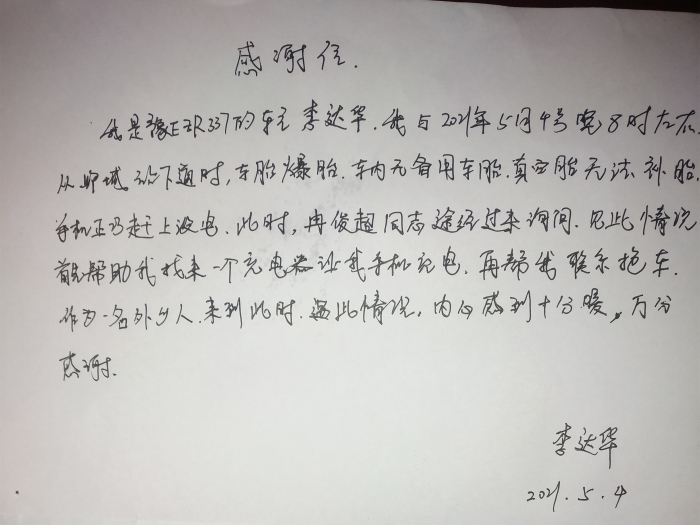 感谢信.
我是豫EZR337的车主李达华.我与2021年5月4号晚8时左右
从 城 下道时,车胎爆胎.车内无备用车胎.真空胎无法补胎.
手机正巧赶上没电.此时,冉俊超同志途经过来询问.见此情况
首先帮助我找来一个充电器让我手机充电.再帮我联系拖车.
作为一名外乡人.来到此时.遇此情况,内心感到十分暖,万分
感谢.
李达华
2021.5.4